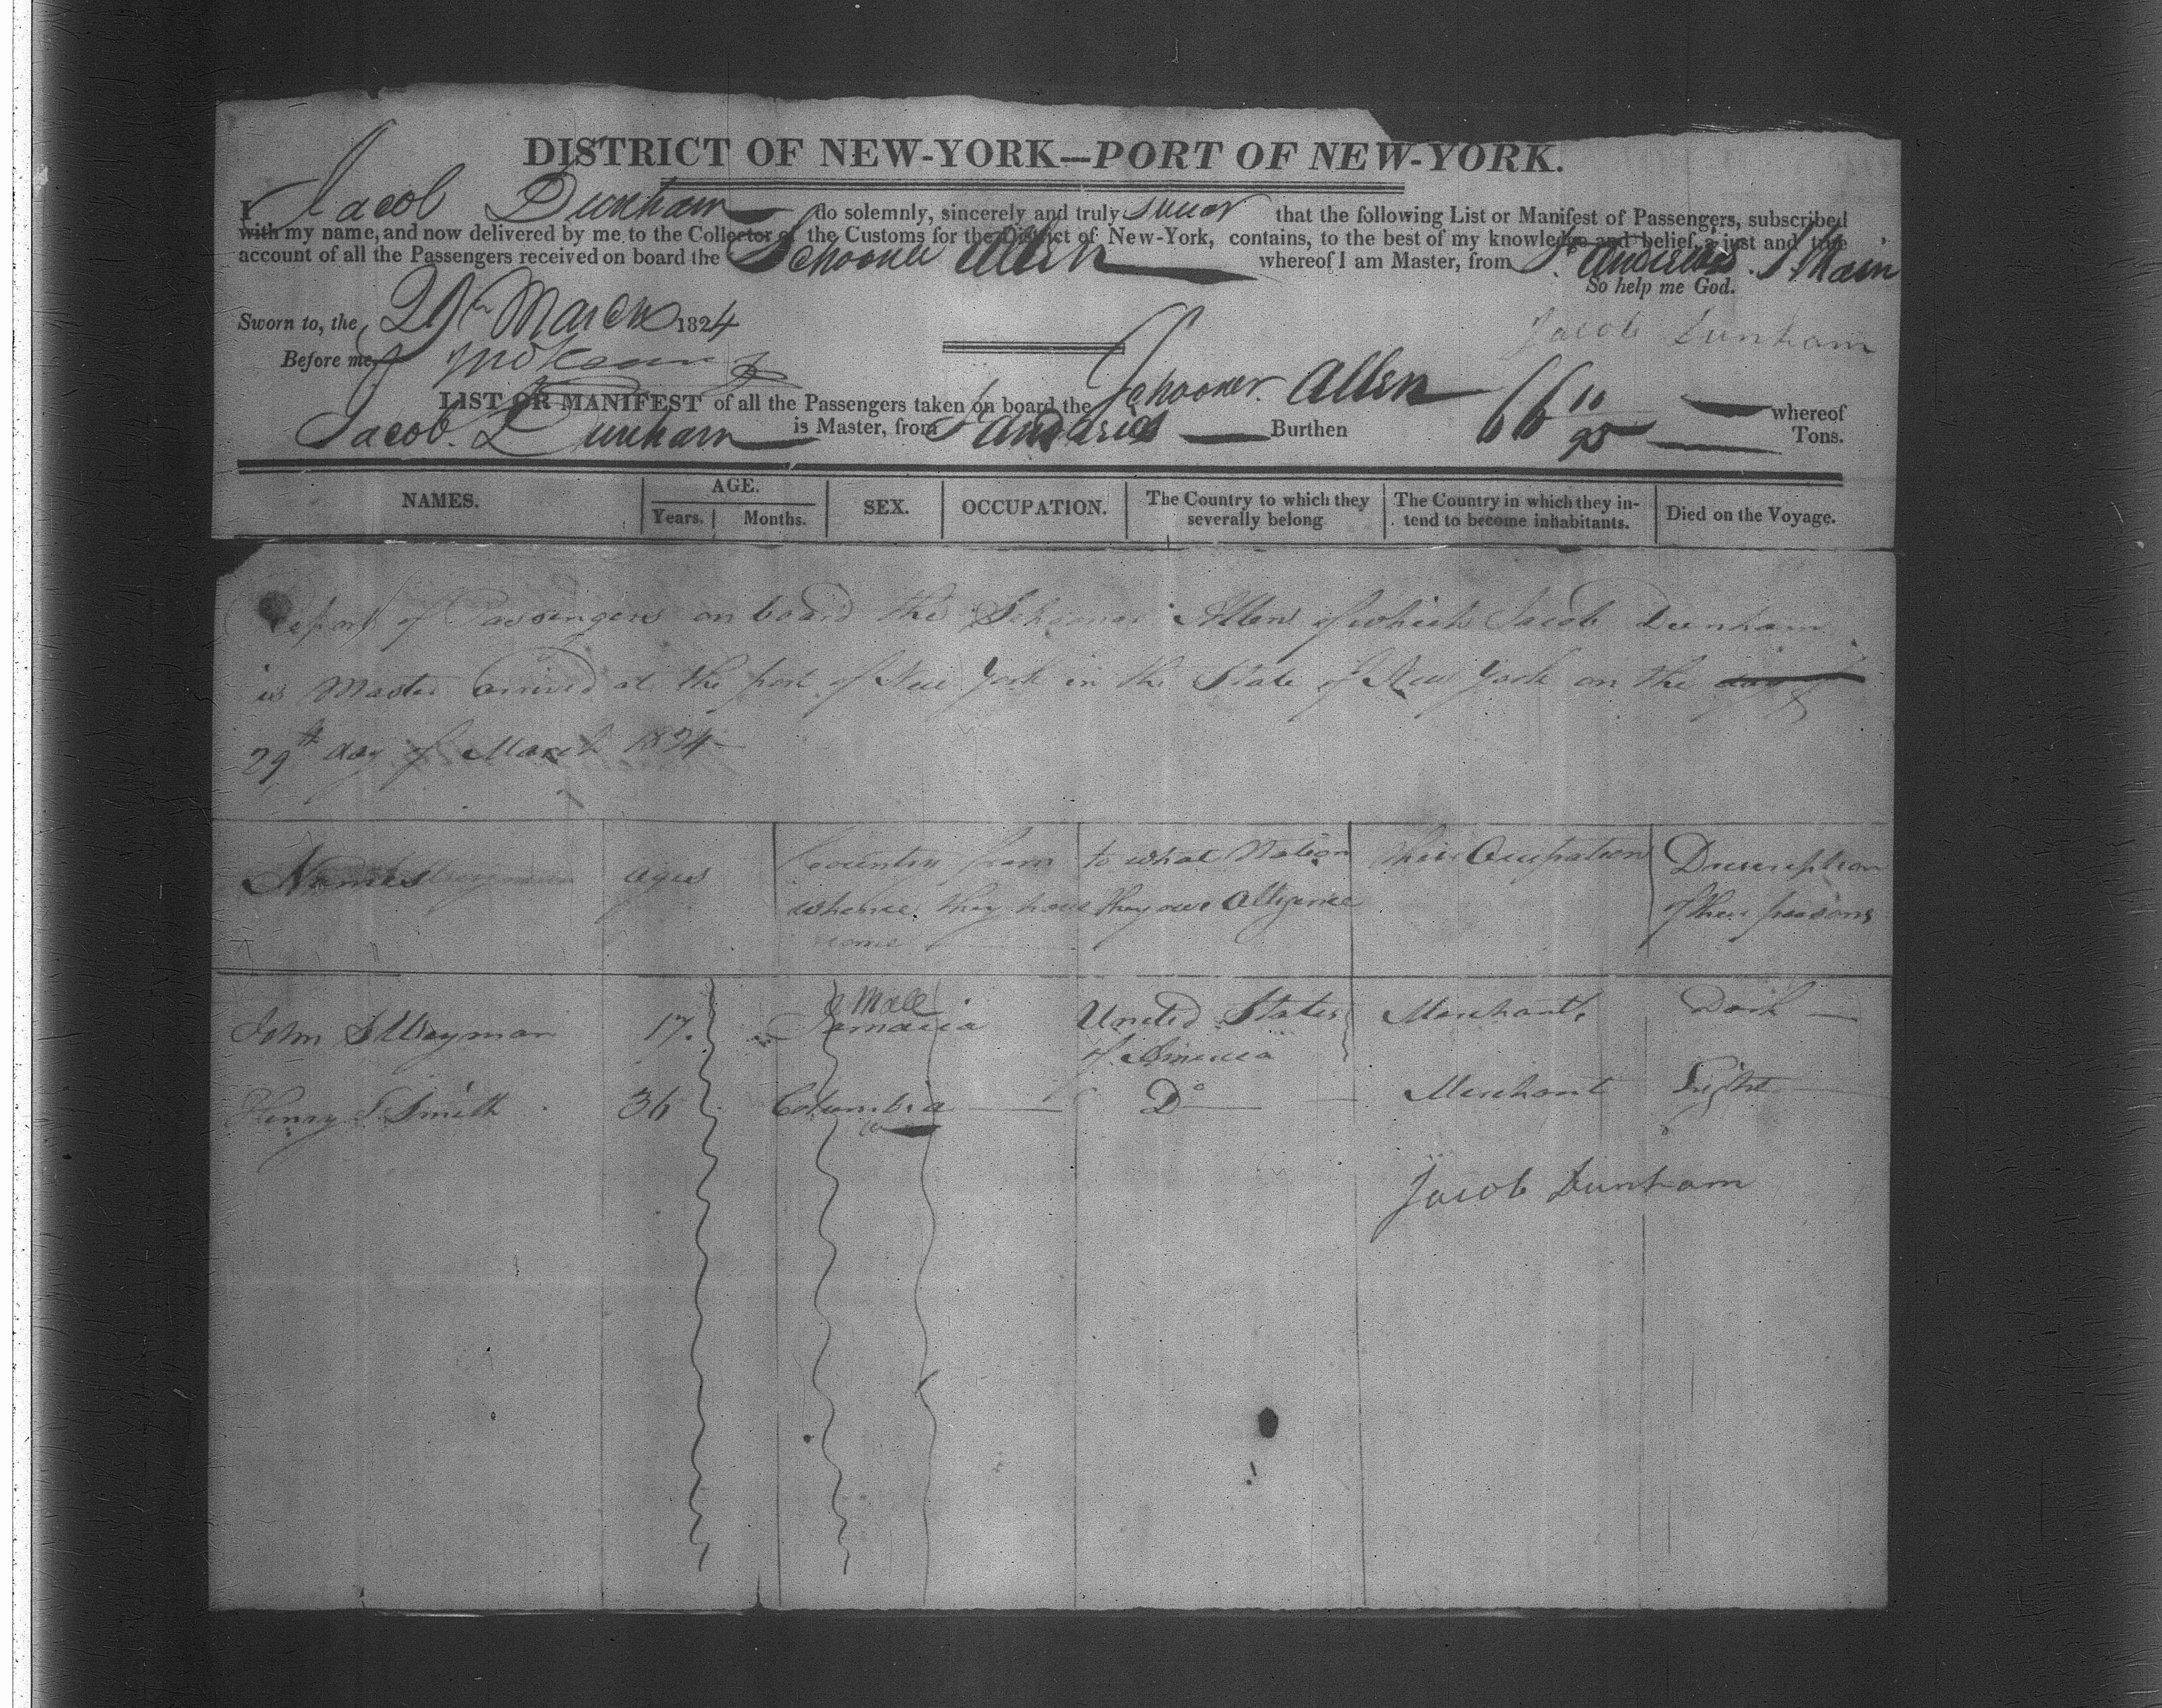 DISTRICT OF NEW-YORK—PORT OF NEW-YORK.
I Jacob Dunham do solemnly, sincerely and truly swear that the following List or Manifest of Passengers, subscribed
with my name, and now delivered by me to the Collector of the Customs for the District of New-York, contains, to the best of my knowledge and belief, a just and true
account of all the Passengers received on board the Schooner Allen whereof I am Master, from St Andreas S. Main
So help me God.
Sworn to, the 29th March 1824
Jacob Dunham
Before me,
LIST OR MANIFEST of all the Passengers taken on board the Schooner Allen whereof
Jacob Dunham is Master, from St Andrias Burthen 66 10/95 Tons.
NAMES. AGE. SEX. OCCUPATION. The Country to which they severally belong The Country in which they intend to become inhabitants. Died on the Voyage.
Years. Months.
Report of Passengers on board the Schooner Allen of which Jacob Dunham
is Master arrived at the port of New York in the State of New York on the day of
29th day of March 1824
Names ages Country from to what Nation their Ocupation Discription
whence they have they owe Allegience of their persons
come
Male
John S Weyman 17. Jamaica United States Merchant Dark
of America
Henry S. Smith 36 Columbia Do Merchant Light
Jacob Dunham